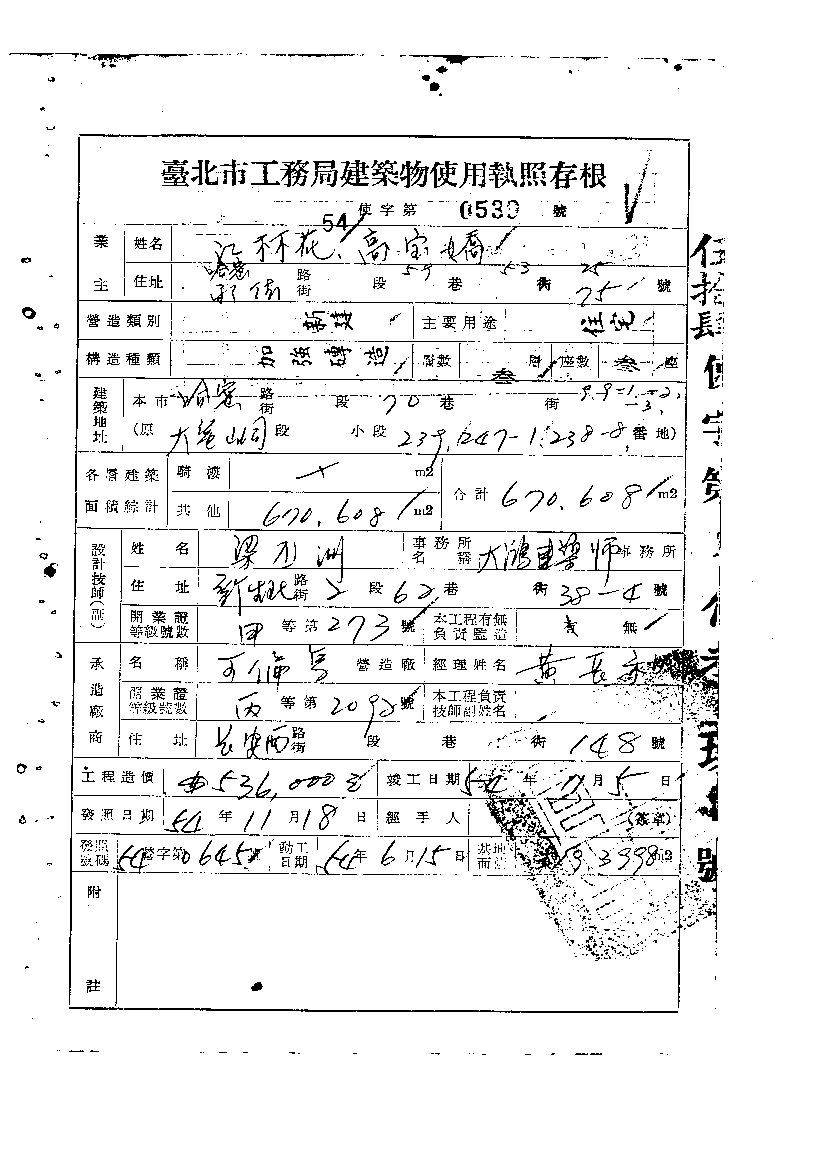 臺北市工務局建築物使用執照存根
54 使字第 0539 號
業主 姓名 林花、高宝嬌
住址 哈密 路街 段 59 巷 53 街 25 75 號
營造類別 新建 主要用途 住宅
構造種類 加強磚造 層數 叁 層 座數 叁 座
建築地址 本市 哈密 路街 段 70 巷 街
(原 大龍峒 段 小段 239,247-1,238-8 番地)
各層建築面積綜計 騎樓 m2
其他 670.608 m2 合計 670.608 m2
設計技師(副) 姓名 梁 洲 事務所名稱 大鴻建築師 事務所
住址 新生北 路街 2 段 62 巷 街 38-4 號
開業證等級號數 甲 等第 273 號 本工程有無負責監造 有 無
承造廠商 名稱 營造廠 經理姓名 黃長
開業證等級號數 丙 等第 2092 號 本工程負責技師副姓名
住址 長安西 路街 段 巷 街 148 號
工程造價 536,000元 竣工日期 54 年 11 月 5 日
發照日期 54 年 11 月 18 日 經手人 (簽章)
發照號碼 54 營字第 0645 號 動工日期 54 年 6 月 15 日 基地面積 3998 m2
附註
伍拾肆使字第 號